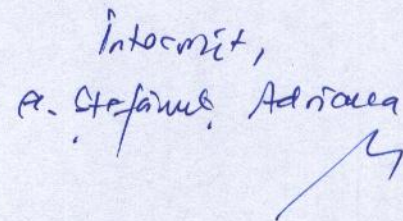 Întocmit,
a. Ștefănuț Adriana